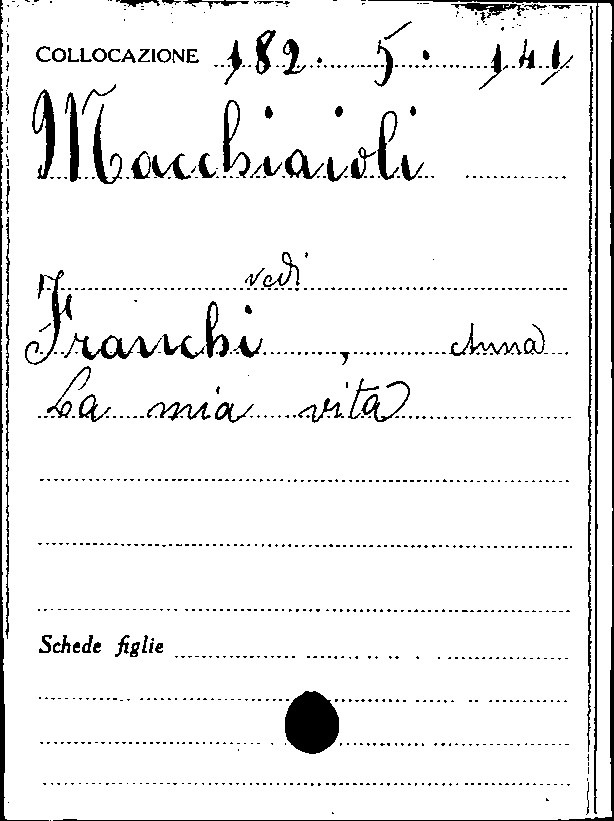 COLLOCAZIONE 182. 5. 141
Macchiaioli
vedi
Franchi, Anna
La mia vita
Schede figlie